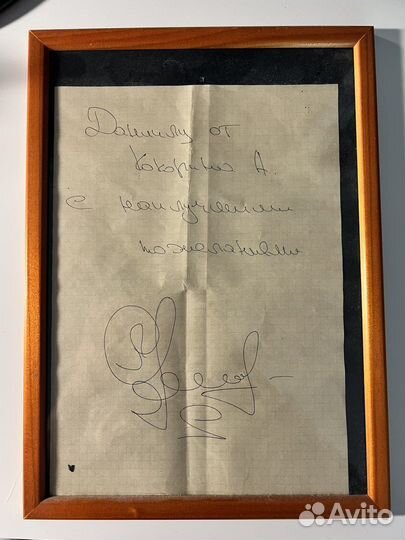 Даниилу от
Кокорина А.
с наилучшими
пожеланиями
Avito